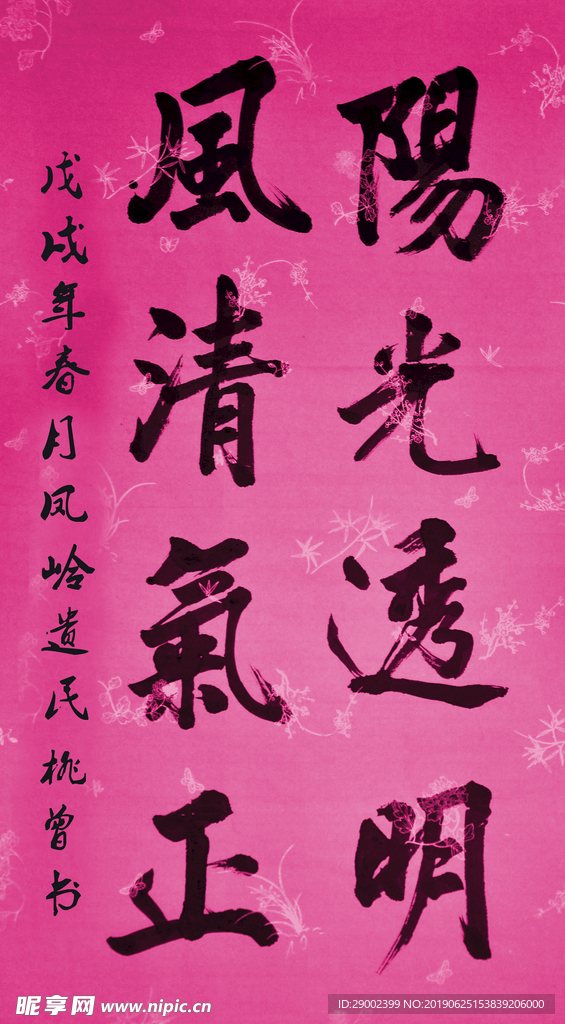 陽光透明
風清氣正
戊戌年春月凤岭遗民桃曾书
昵享网 www.nipic.cn
ID:29002399 NO:20190625153839206000